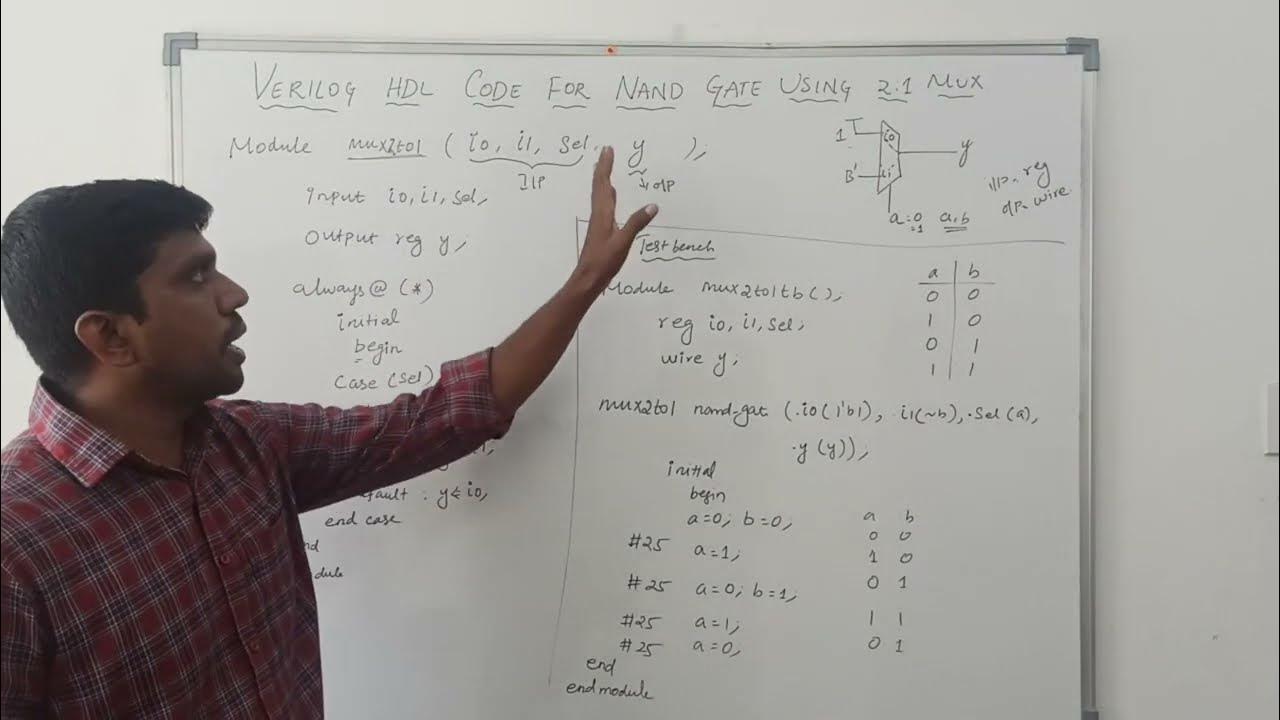 VERILOG HDL CODE FOR NAND GATE USING 2:1 MUX
Module mux2to1 ( i0, i1, Sel, y );
I/P o/p
Input i0, i1, Sel;
Output reg y;
always@ (*)
initial
begin
Case (Sel)
default : y<= i0;
end case
1
i0
y
B'
i1
a=0 a,b
=1
I/P - reg
o/p - wire
Test bench
Module mux2to1tb();
reg i0, i1, Sel;
wire y;
a b
0 0
1 0
0 1
1 1
mux2to1 nand-gat (.i0(1'b1), .i1(~b), .Sel(a),
.y (y));
initial
begin
a=0; b=0;
#25 a=1;
#25 a=0; b=1;
#25 a=1;
#25 a=0;
end
endmodule
a b
0 0
1 0
0 1
1 1
0 1